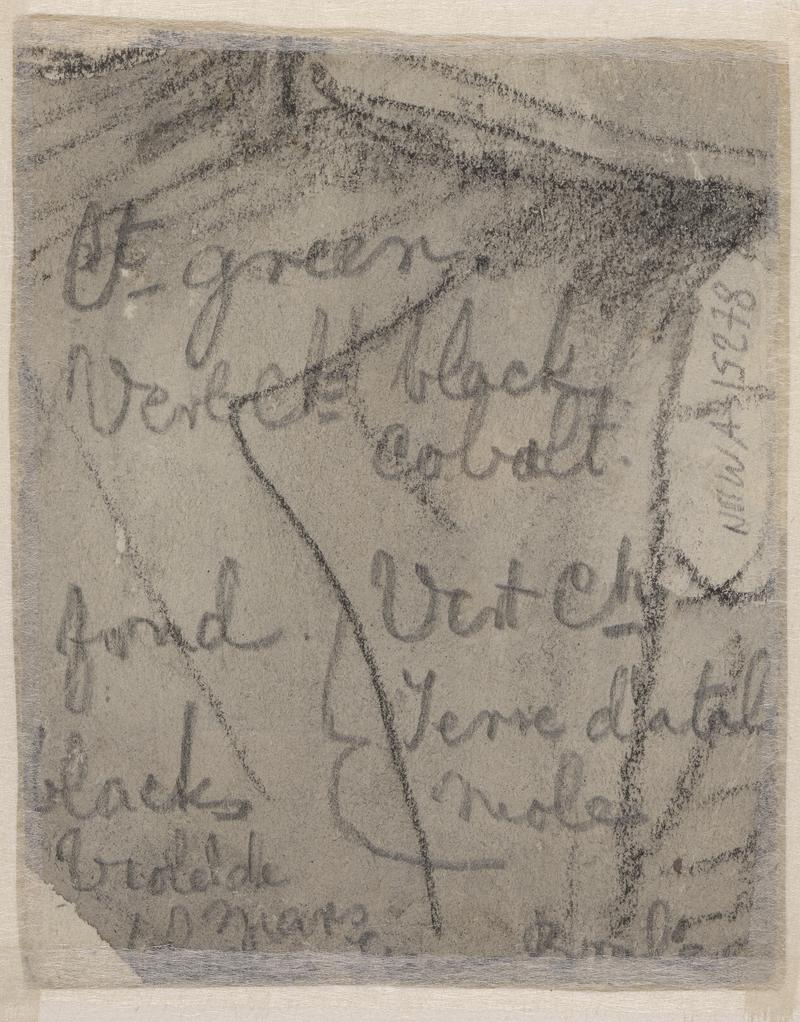 green
Vert Ch
black
cobalt.
fond
Vert Ch
Terre d'atal
mole
blacks
Violet de
Mars
NBWAA15278